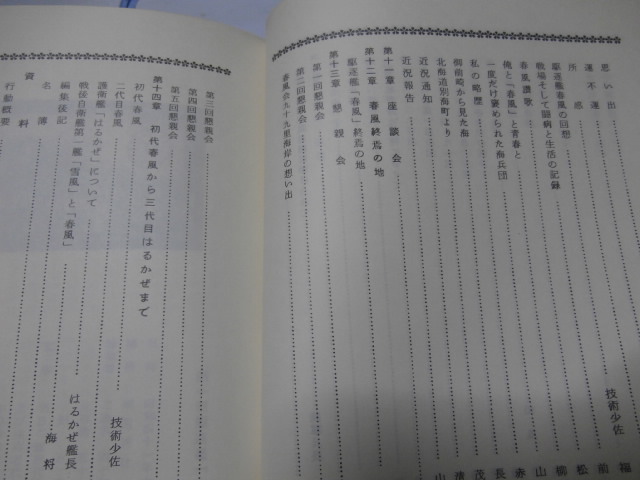 思い出
運不運
所感
駆逐艦春風の回想
戦場そして闘病と生活の記録
春風讃歌
俺と「春風」と青春と
一度だけ褒められた海兵団
私の略歴
御前崎から見た海
北海道別海町より
近況通知
近況報告
第十一章 座談会
第十二章 春風終焉の地
駆逐艦「春風」終焉の地
第十三章 懇親会
第一回懇親会
第二回懇親会
春風の九十九里海岸の想い出
技術少佐
福
前
松
柳
山
赤
長
茂
山
第三回懇親会
第四回懇親会
第五回懇親会
第十四章 初代春風から三代目はるかぜまで
初代春風
二代目春風
護衛艦「はるかぜ」について
戦後自衛艦第一艦「雪風」と「春風」
編集後記
名簿
資料
行動概要
技術少佐
はるかぜ艦長
海将